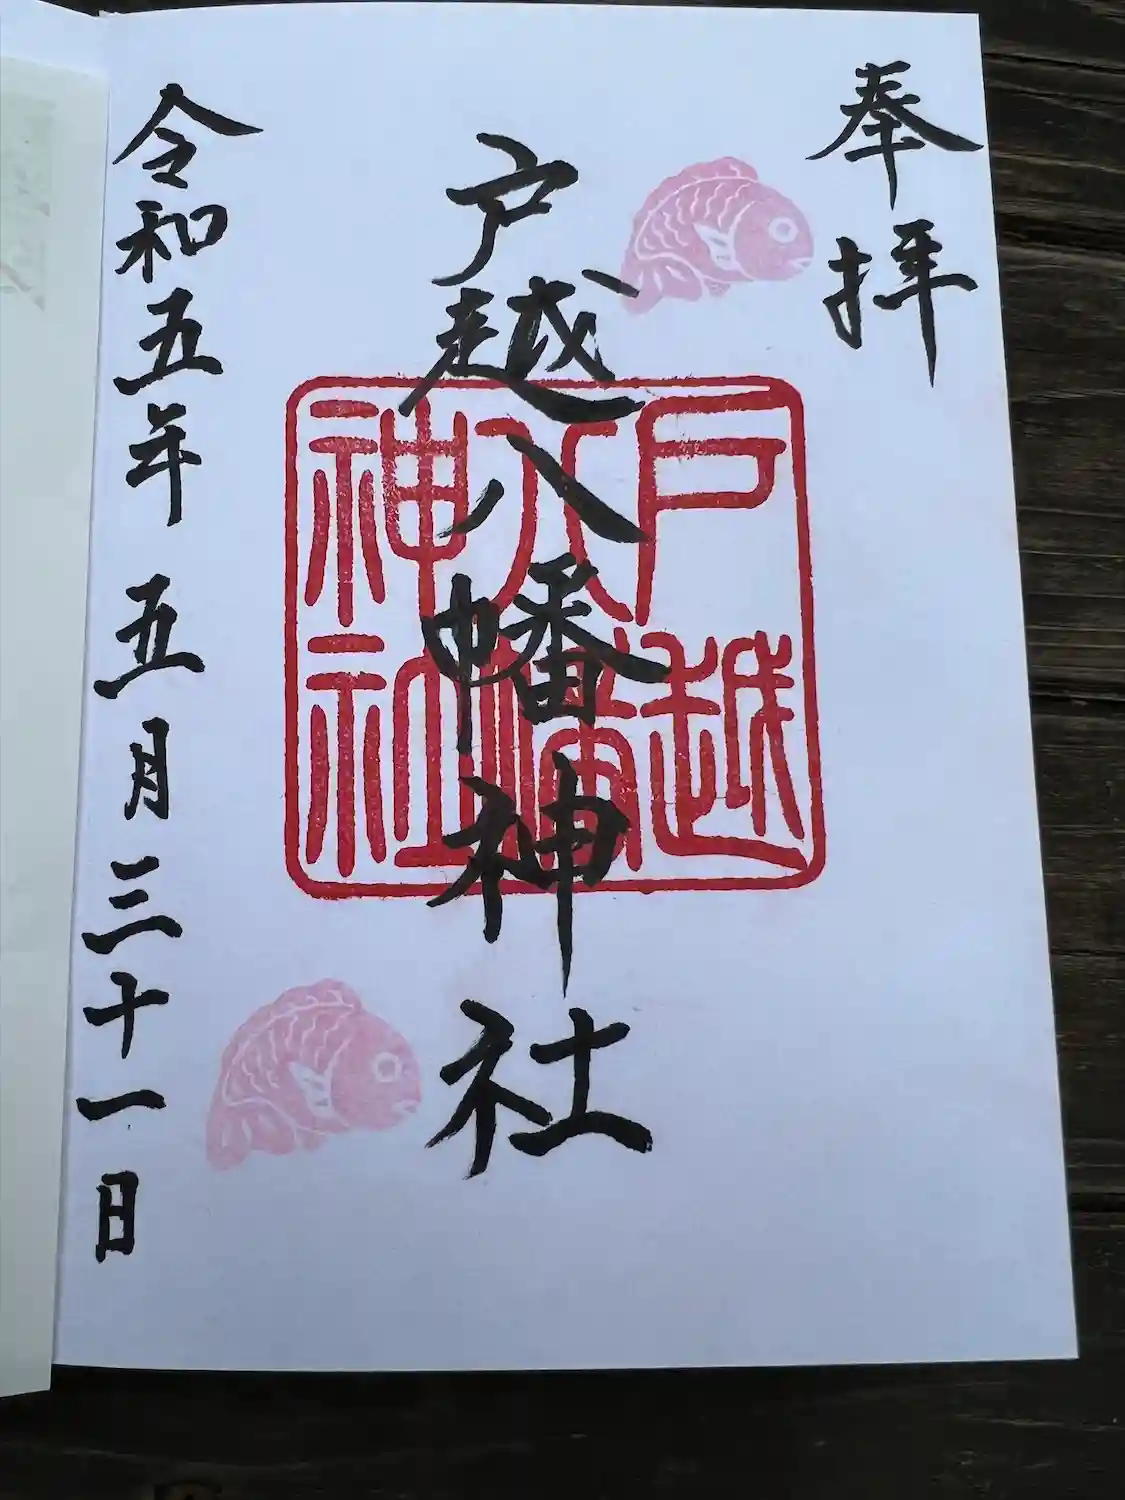 奉拝
戸越八幡神社
戸越八幡神社
令和五年五月三十一日